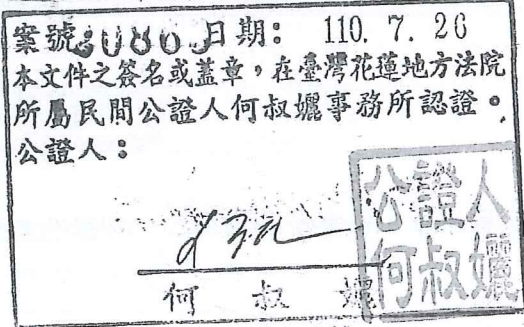 案號 日期: 110. 7. 26
本文件之簽名或蓋章,在臺灣花蓮地方法院
所屬民間公證人何叔孋事務所認證。
公證人:
何 叔 孋
公證人
何叔孋